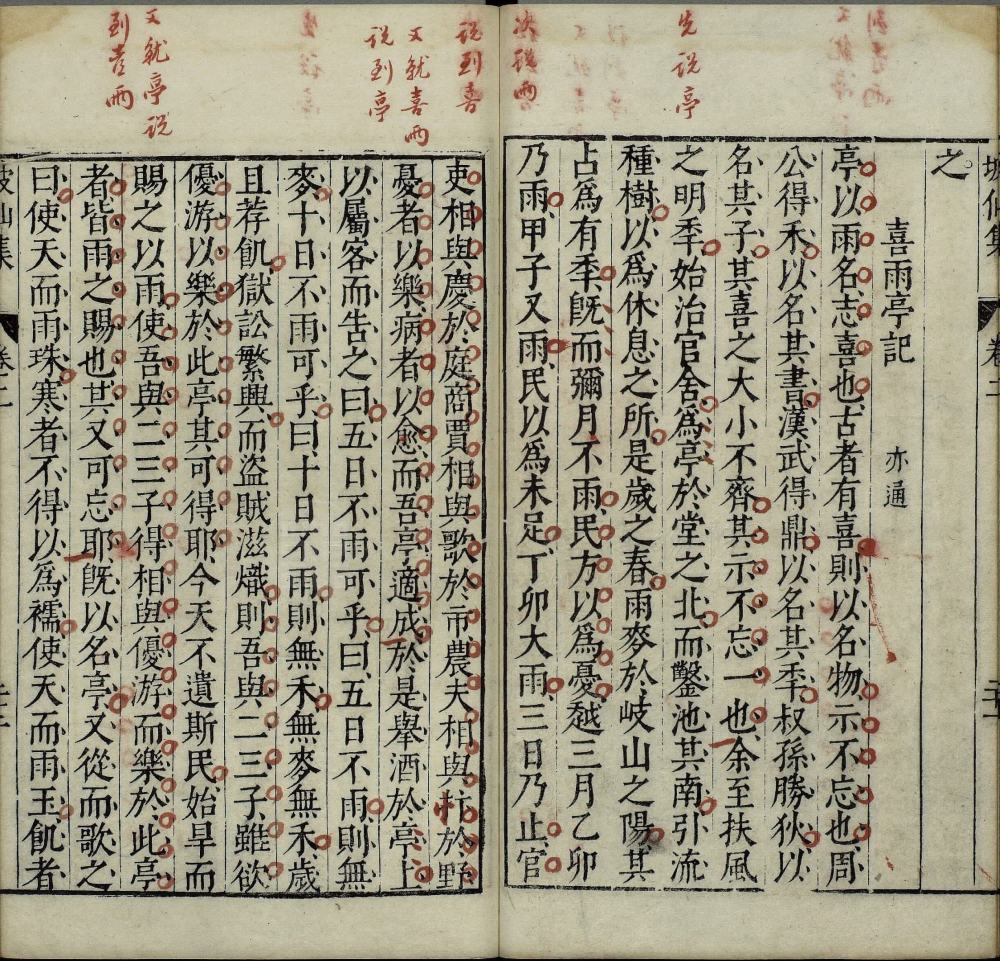 坡仙集 卷二
之
喜雨亭記 亦通
先說亭
次說雨
亭以雨名志喜也古者有喜則以名物示不忘也周
公得禾以名其書漢武得鼎以名其季叔孫勝狄以
名其子其喜之大小不齊其示不忘一也余至扶風
之明季始治官舍爲亭於堂之北而鑿池其南引流
種樹以爲休息之所是歲之春雨麥於岐山之陽其
占爲有季既而彌月不雨民方以爲憂越三月乙卯
乃雨甲子又雨民以爲未足丁卯大雨三日乃止官
說到喜
又就喜雨
說到亭
又就亭說
到喜雨
吏相與慶於庭商賈相與歌於市農夫相與抃於野
憂者以樂病者以愈而吾亭適成於是舉酒於亭上
以屬客而告之曰五日不雨可乎曰五日不雨則無
麥十日不雨可乎曰十日不雨則無禾無麥無禾歲
且荐飢獄訟繁興而盜賊滋熾則吾與二三子雖欲
優游以樂於此亭其可得耶今天不遺斯民始旱而
賜之以雨使吾與二三子得相與優游而樂於此亭
者皆雨之賜也其又可忘耶既以名亭又從而歌之
曰使天而雨珠寒者不得以爲襦使天而雨玉飢者
坡仙集 卷二